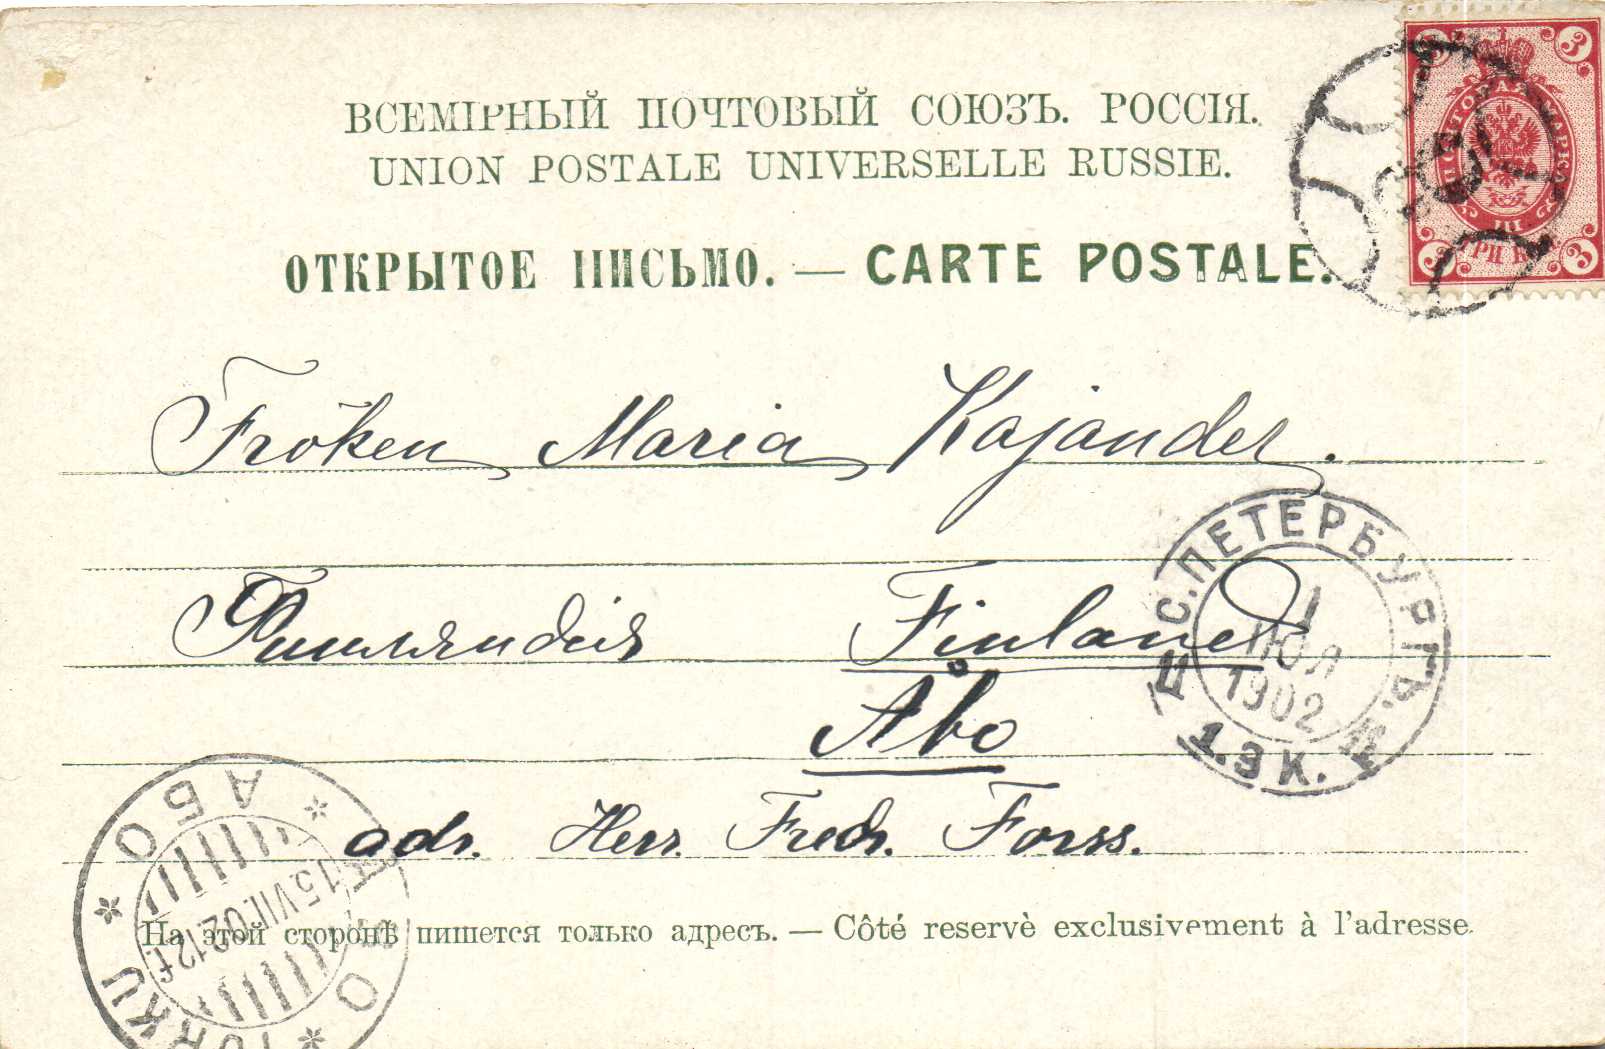 ВСЕМІРНЫЙ ПОЧТОВЫЙ СОЮЗЪ. РОССІЯ.
UNION POSTALE UNIVERSELLE RUSSIE.
ОТКРЫТОЕ ПИСЬМО. — CARTE POSTALE.
3 3
ПОЧТОВАЯ МАРКА
ТРИ К
3 3
Fröken Maria Kajander.
Финляндія Finland
Åbo
adr. Herr. Fredr. Forss.
С.ПЕТЕРБУРГЪ.
1
ІЮЛ
1902
1.Э К.
АБО
ÅBO
TURKU
15.VII.02.12f.
На этой сторонѣ пишется только адресъ. — Côté reservè exclusivement à l'adresse.